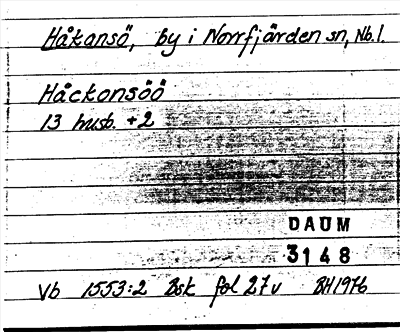 Håkansö, by i Norrfjärden sn, Nb.l.
Håckonsöö
13 husb. +2
DAUM
3148
Vb 1553:2 Bsk fol 27v BH1976